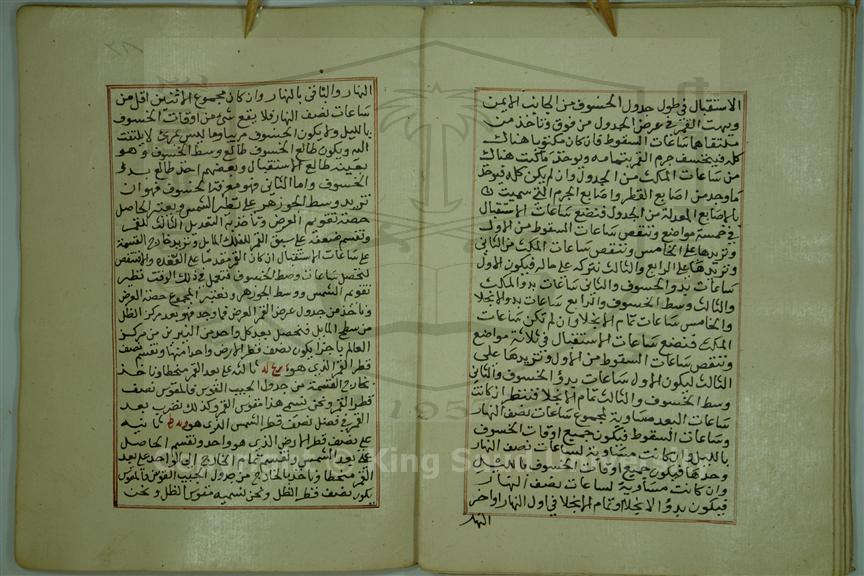 الاستقبال في طول جدول الخسوف من الجانب الايمن
وبهت القمر في عرض الجدول من فوق وناخذ من
ملتقاهما ساعات السقوط فان كان مكتوبا هناك
كله فينخسف جرم القمر بتمامه ويوخذ ما كتب هناك
من ساعات المكث من الجدول وان لم يكن كله فيوخذ
ما وجد من اصابع القطر واصابع الجرم التي سميت
بالاصابع المعدلة من الجدول فتضع ساعات الاستقبال
في خمسة مواضع وتنقص ساعات السقوط من الاول
وتزيدها على الخامس وتنقص ساعات المكث من الثاني
وتزيدها على الرابع والثالث نتركه على حاله فيكون الاول
ساعات بدو الخسوف والثاني ساعات بدو المكث
والثالث وسط الخسوف والرابع ساعات بدو الانجلا
والخامس ساعات تمام الانجلا وان لم تكن ساعات
المكث فتضع ساعات الاستقبال في ثلاثة مواضع
وتنقص ساعات السقوط من الاول وتزيدها على
الثالث ليكون الاول ساعات بدو الخسوف والثاني
وسط الخسوف والثالث تمام الانجلا فننظر ان كانت
ساعات البعد مساوية لمجموع ساعات نصف النهار
وساعات السقوط فيكون جميع اوقات الخسوف
بالليل وان كانت مساوية لساعات نصف النهار
وحدها فيكون جميع اوقات الخسوف بالليل
وان كانت مساوية لساعات نصف النهار
فيكون بدو الانجلا وتمام الانجلا في اول النهار اواخر
النها
النهار والثاني بالنهار وان كان مجموع الاثنين اقل من
ساعات نصف النهار فلا يقع شي من اوقات الخسوف
بالليل ولا يكون الخسوف مرييا وما ليس بمرئ لا يلتفت
اليه ويكون طالع الخسوف طالع وسط الخسوف وهو
بعينه طالع الاستقبال وبعضهم اخذ طالع بدو
الخسوف واما الثاني فهو معرفة الخسوف فهو ان
تزيد وسط الجوزهر على نظير الشمس ويعتبر الحاصل
حصة تقويم العرض وناخذ به التعديل الثالث للقمر
وتقسم ضعفه على سبق القمر للفلك المايل ونزيد خارج القسمة
على ساعات الاستقبال ان كان القمر مقدما على العقدة والا فننقص
لتحصل ساعات وسط الخسوف فنعمل في ذلك الوقت نظير
تقويم الشمس ووسط الجوزهر ونعتبر المجموع حصة العرض
وناخذ من جدول عرض القمر العرض فما وجد فهو بعد مركز الظل
من سطح المايل فنحصل بعد كل واحد من النيرين من مركز
العالم باجزا يكون نصف قطر الارض واحدا منها ونقسم نصف
قطر القمر الذي هو على بعد القمر منحطا وناخذ
بخارج القسمة من جدول الجيب القوس فالمقوس نصف
قطر القمر ونحن نسمي هذا مقوس القمر وكذلك نضرب بعد
القمر في فضل نصف قطر الشمس الذي هو
على نصف قطر الارض الذي هو واحد ونقسم الحاصل
على بعد الشمس وننقص الخارج من الواحد على بعد
القمر منحطا وناخذ بالخارج من جدول الجيب القوس فالمقوس
يكون نصف قطر الظل ونحن نسميه مقوس الظل ونحن